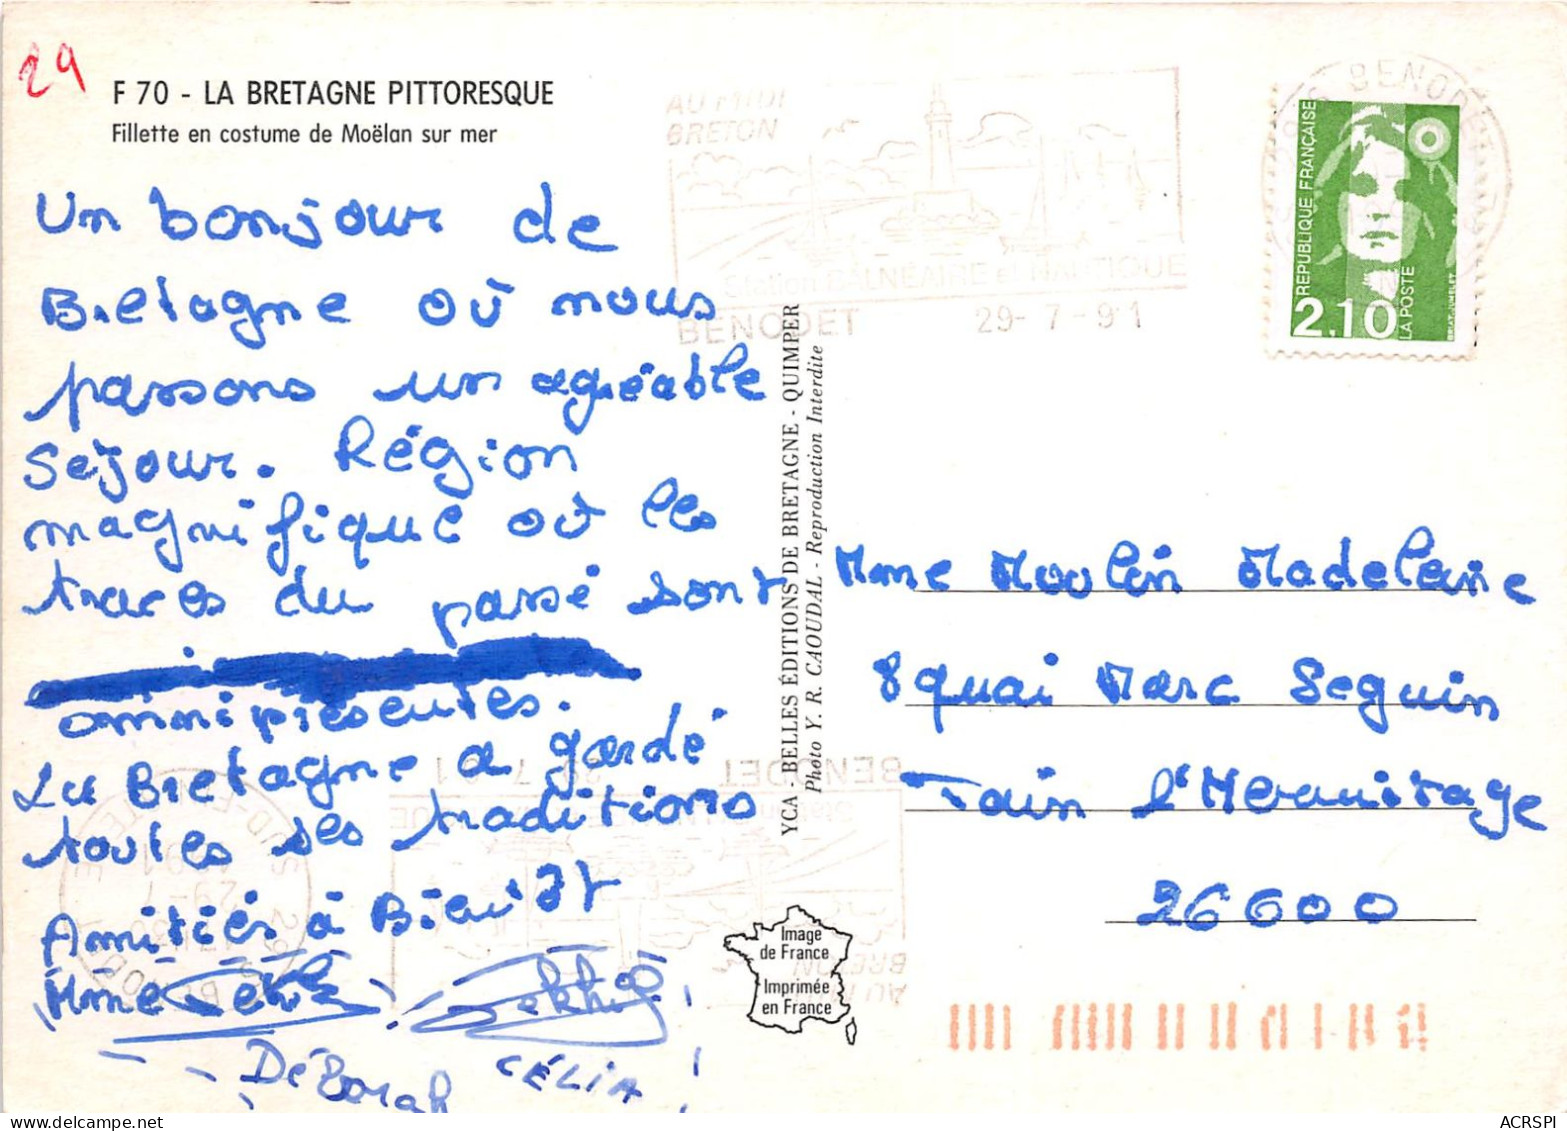 29
F 70 - LA BRETAGNE PITTORESQUE
Fillette en costume de Moëlan sur mer
Un bonjour de
Bretagne où nous
passons un agréable
Séjour. Région
magnifique où les
traces du passé sont
omniprésentes.
La Bretagne a gardé
toutes ses traditions
Amitiés à Bientôt
Mme
Déborah
CÉLIA
AU MIDI
BRETON
Station BALNÉAIRE et NAUTIQUE
BENODET 29-7-91
BENODET
REPUBLIQUE FRANÇAISE
2,10
LA POSTE
YCA - BELLES ÉDITIONS DE BRETAGNE - QUIMPER
Photo Y. R. CAOUDAL - Reproduction Interdite
Mme Moulin Madeleine
8 quai Marc Seguin
Tain l'Hermitage
26600
BENODET
AU MIDI
BRETON
Image
de France
Imprimée
en France
ACRSPI